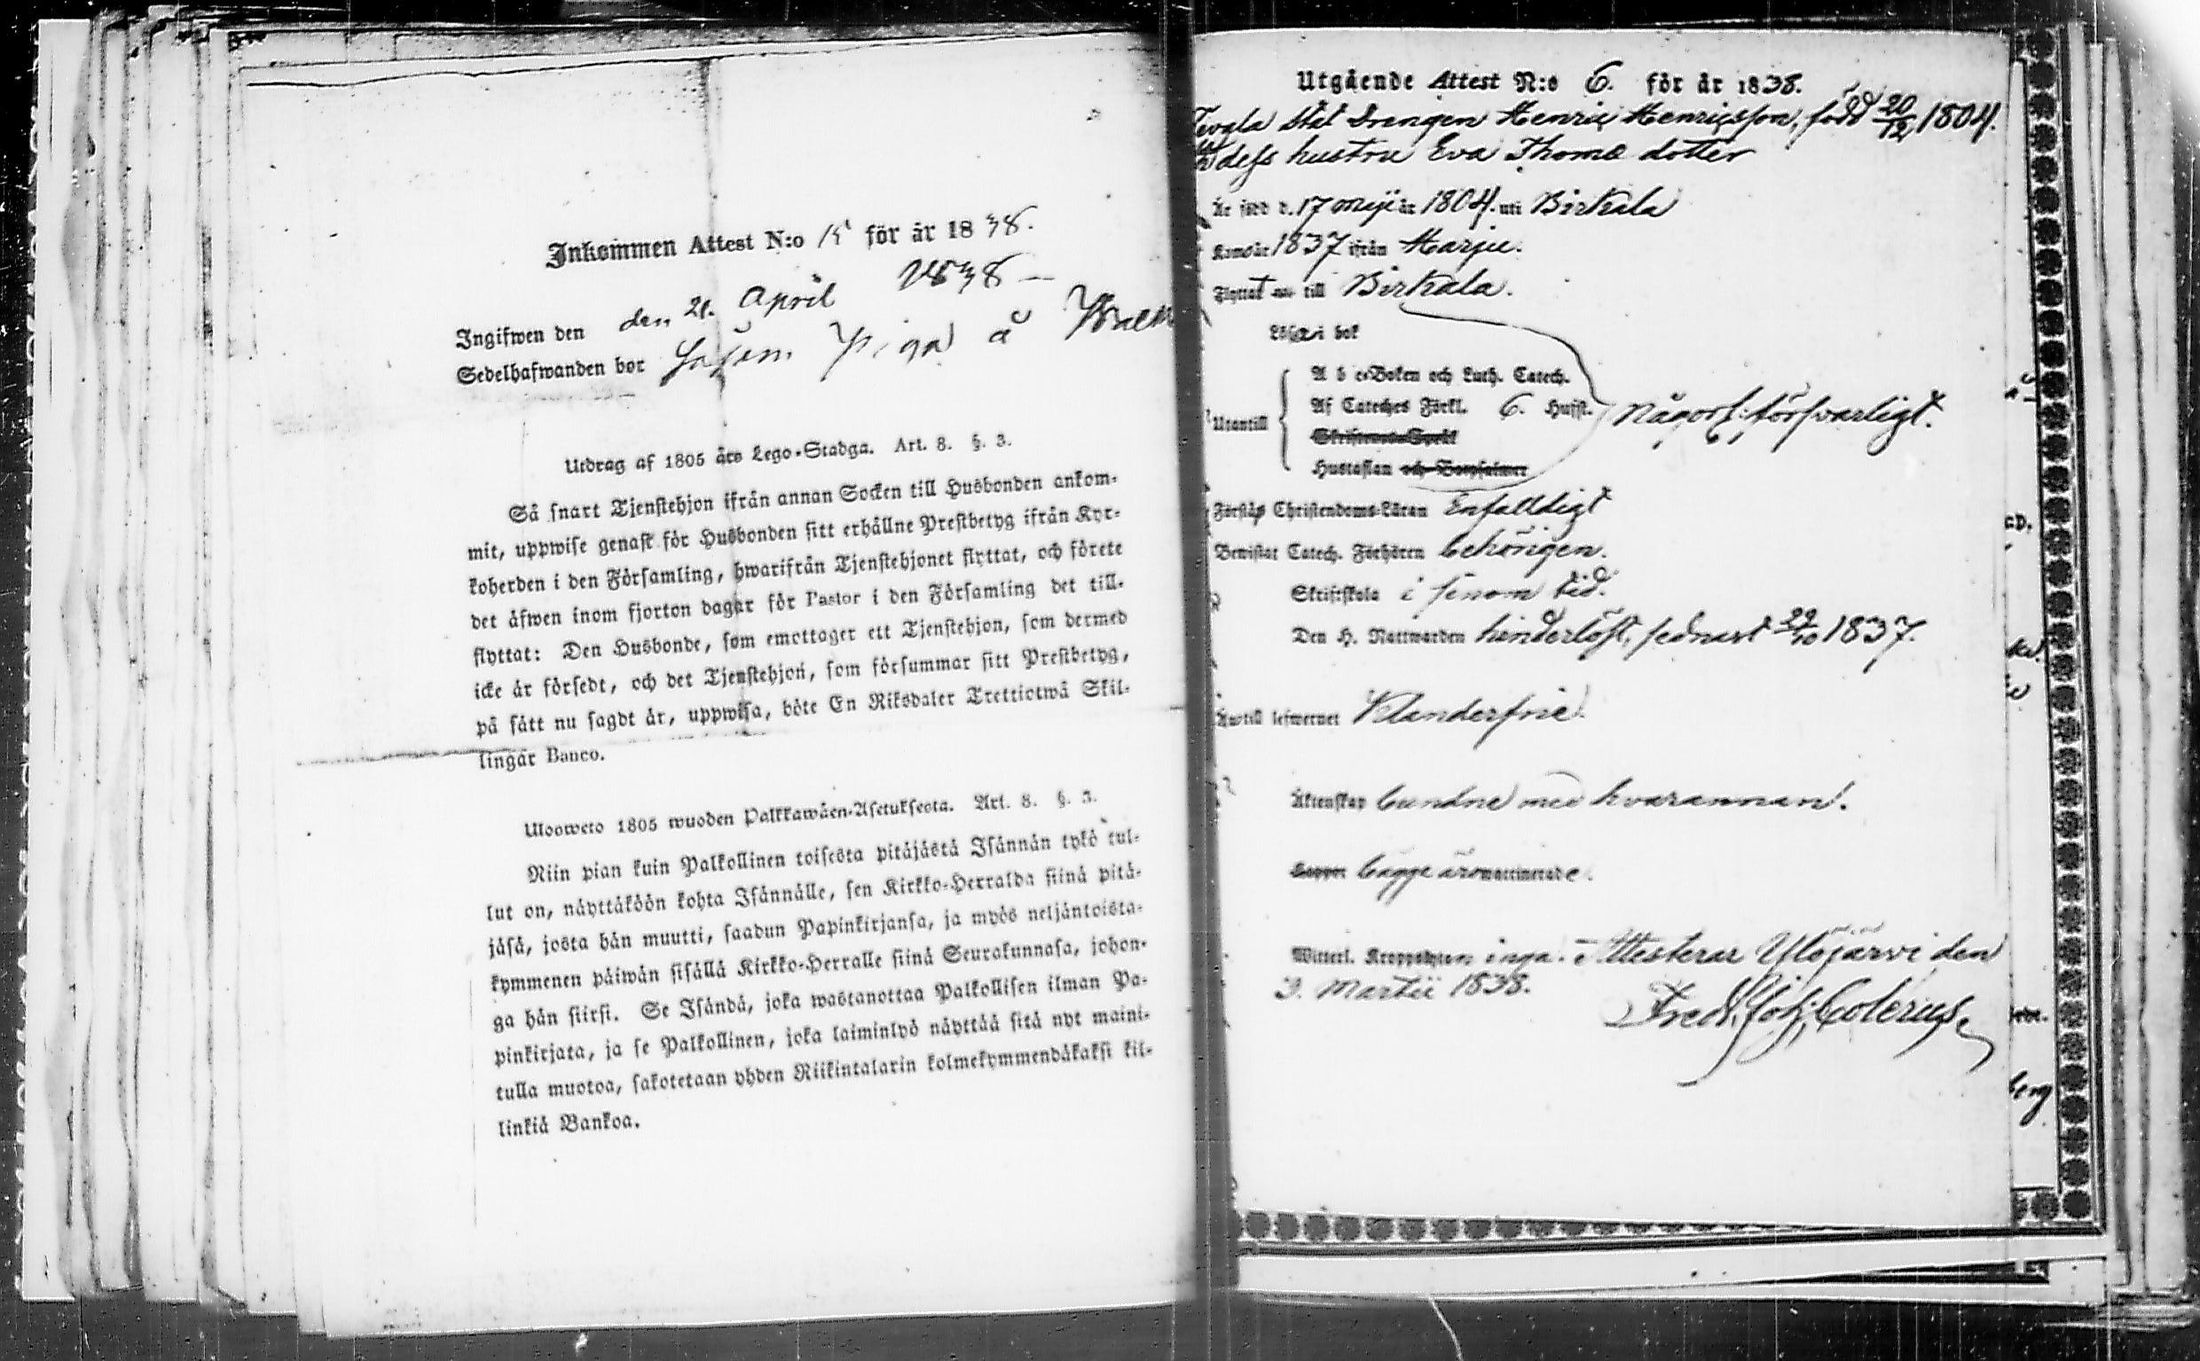 Inkommen Attest N:o 15 för år 1838.
Ingifwen den den 21. April 1838 —
Sedelhafwanden bor såsom Piga å
Utdrag af 1805 års Lego-Stadga. Art. 8. §. 3.
Så snart Tjenstehjon ifrån annan Socken till Husbonden ankom-
mit, uppwise genast för Husbonden sitt erhållne Prestbetyg ifrån Kyr-
koherden i den Församling, hwarifrån Tjenstehjonet flyttat, och förete
det äfwen inom fjorton dagar för Pastor i den Församling det till-
flyttat: Den Husbonde, som emottager ett Tjenstehjon, som dermed
icke är försedt, och det Tjenstehjon, som försummar sitt Prestbetyg,
på sätt nu sagdt är, uppwisa, böte En Riksdaler Trettiotwå Skil-
lingar Banco.
Ulosweto 1805 wuoden Palkkawäen-Asetuksesta. Art. 8. §. 3.
Niin pian kuin Palkollinen toisesta pitäjästä Isännän tykö tul-
lut on, näyttäköön kohta Isännälle, sen Kirkko-Herralda siinä pitä-
jäsä, josta hän muutti, saadun Papinkirjansa, ja myös neljäntoista-
kymmenen päiwän sisällä Kirkko-Herralle siinä Seurakunnasa, johon-
ga hän siirsi. Se Isändä, joka wastanottaa Palkollisen ilman Pa-
pinkirjata, ja se Palkollinen, joka laiminlyö näyttää sitä nyt maini-
tulla muotoa, sakotetaan yhden Riikintalarin kolmekymmendäkaksi kil-
linkiä Bankoa.
Utgående Attest N:o 6. för år 1838.
Tevala Stat Drengen Henric Henricsson, född 20/12 1804.
dess hustru Eva Thomæ dotter
Är född d. 17 Maji år 1804. uti Birkala
Kom år 1837 ifrån Harju.
Flyttat till Birkala.
Läsa i bok
A b c-Boken och Luth. Catech.
Utantill Af Cateches Förkl. 6. Hufst. Någorl: försvarligt.
Skriftenes Språk
Hustaflan och Botpsalmer
Förstår Christendoms-Läran Enfalldigt
Bewistat Catech. Förhören behörigen.
Skriftskola i sinom tid.
Den H. Nattwarden hinderlöst, sednast 22/10 1837.
Är till lefwernet Klanderfrie.
Äktenskap bundne med hvarannan.
Koppor bägge äro waccinerade.
Witterl. Kroppslyten inga. Attesterar Ylöjärvi den
3. Martii 1838.
Fred. Joh: Colerus.